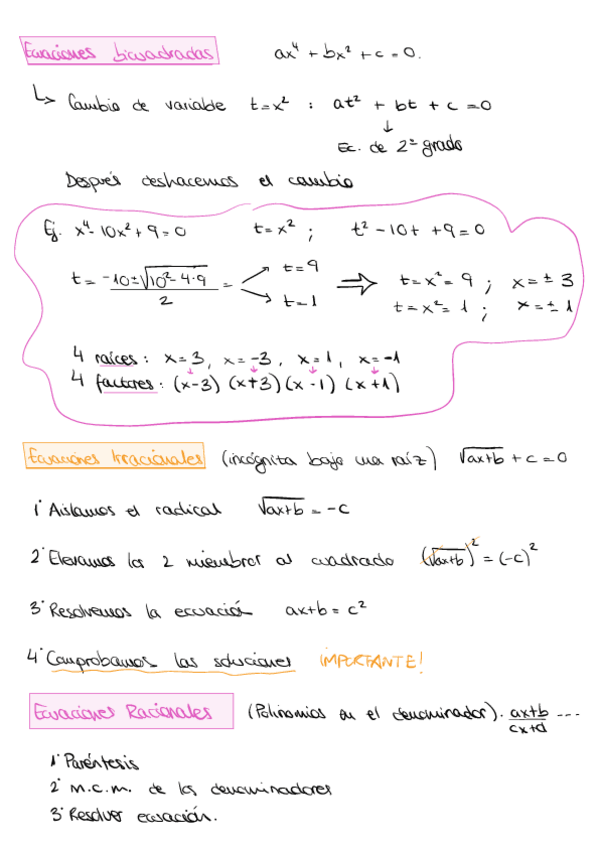 Ecuaciones bicuadradas ax⁴ + bx² + c = 0.
↳ Cambio de variable t = x² : at² + bt + c = 0
↓
Ec. de 2º grado
Después deshacemos el cambio
Ej. x⁴ - 10x² + 9 = 0 t = x² ; t² - 10t + 9 = 0
t = (-10 ± √(10² - 4·9)) / 2 = t = 9 ⇒ t = x² = 9 ; x = ± 3
t = 1 t = x² = 1 ; x = ± 1
4 raíces : x = 3, x = -3, x = 1, x = -1
4 factores : (x-3) (x+3) (x-1) (x+1)
Ecuaciones Irracionales (incógnita bajo una raíz) √(ax+b) + c = 0
1· Aislamos el radical √(ax+b) = -c
2· Elevamos los 2 miembros al cuadrado (√(ax+b))² = (-c)²
3· Resolvemos la ecuación ax+b = c²
4· Comprobamos las soluciones IMPORTANTE!
Ecuaciones Racionales (Polinomios en el denominador). (ax+b)/(cx+d) ....
1· Paréntesis
2· m.c.m. de los denominadores
3· Resolver ecuación.